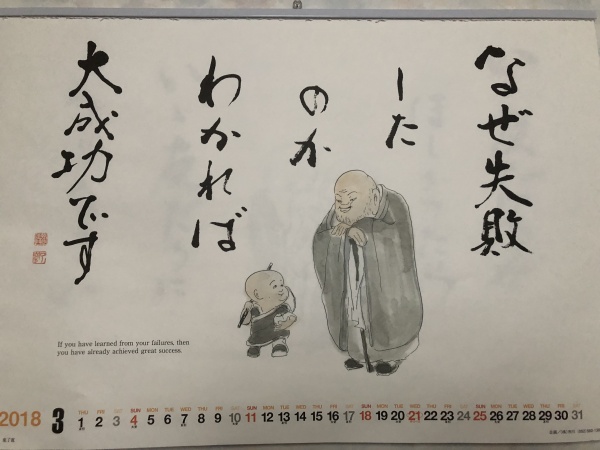 なぜ失敗
した
のか
わかれば
大成功です
If you have learned from your failures, then
you have already achieved great success.
2018 3
THU FRI SAT SUN MON TUE WED THU FRI SAT SUN MON TUE WED THU FRI SAT SUN MON TUE WED THU FRI SAT SUN MON TUE WED THU FRI SAT
1 2 3 4 5 6 7 8 9 10 11 12 13 14 15 16 17 18 19 20 21 22 23 24 25 26 27 28 29 30 31